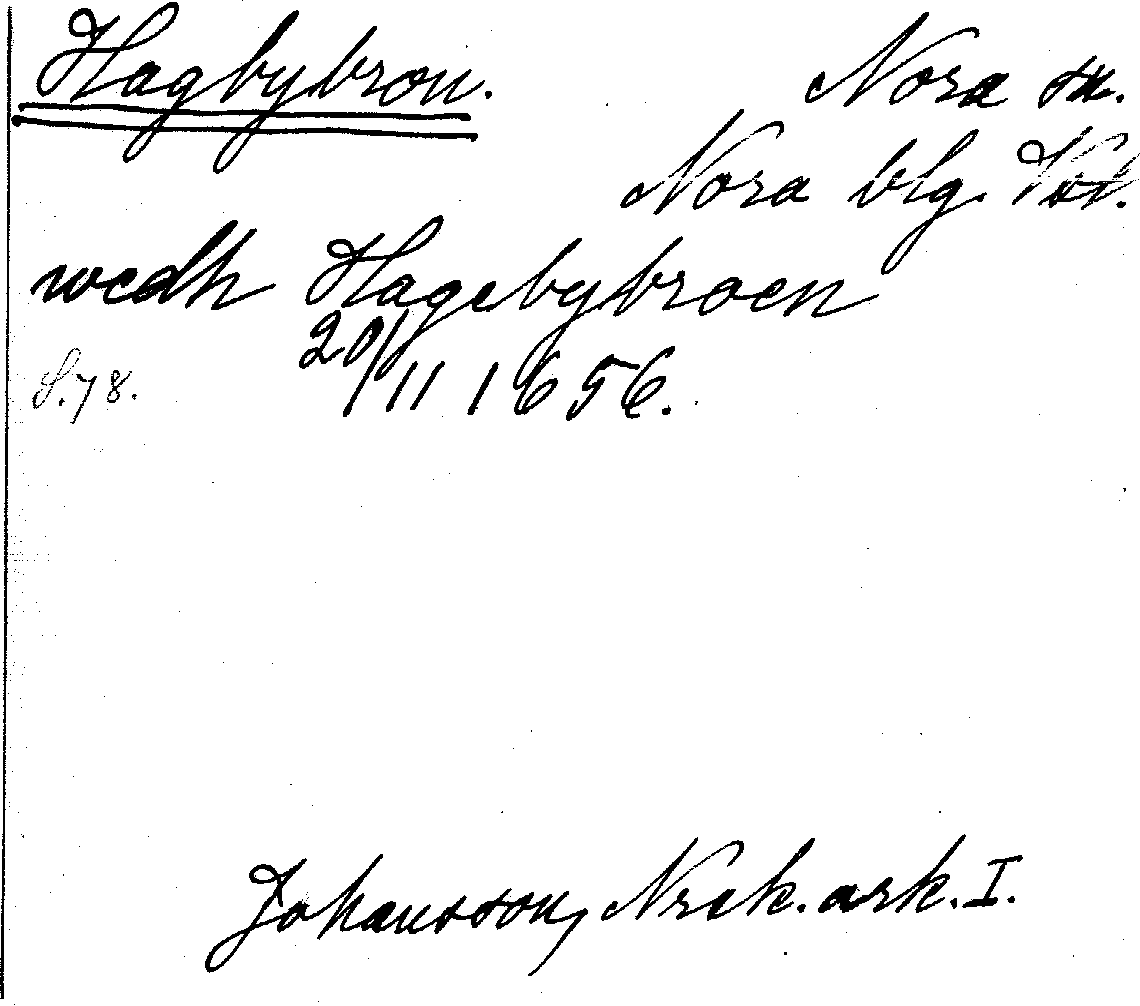 Hagbybron. Nora sn.
Nora blg. Vstm.
wedh Hagebybroen
S. 78. 20/11 1656.
Johansson, Nrck. ark. I.